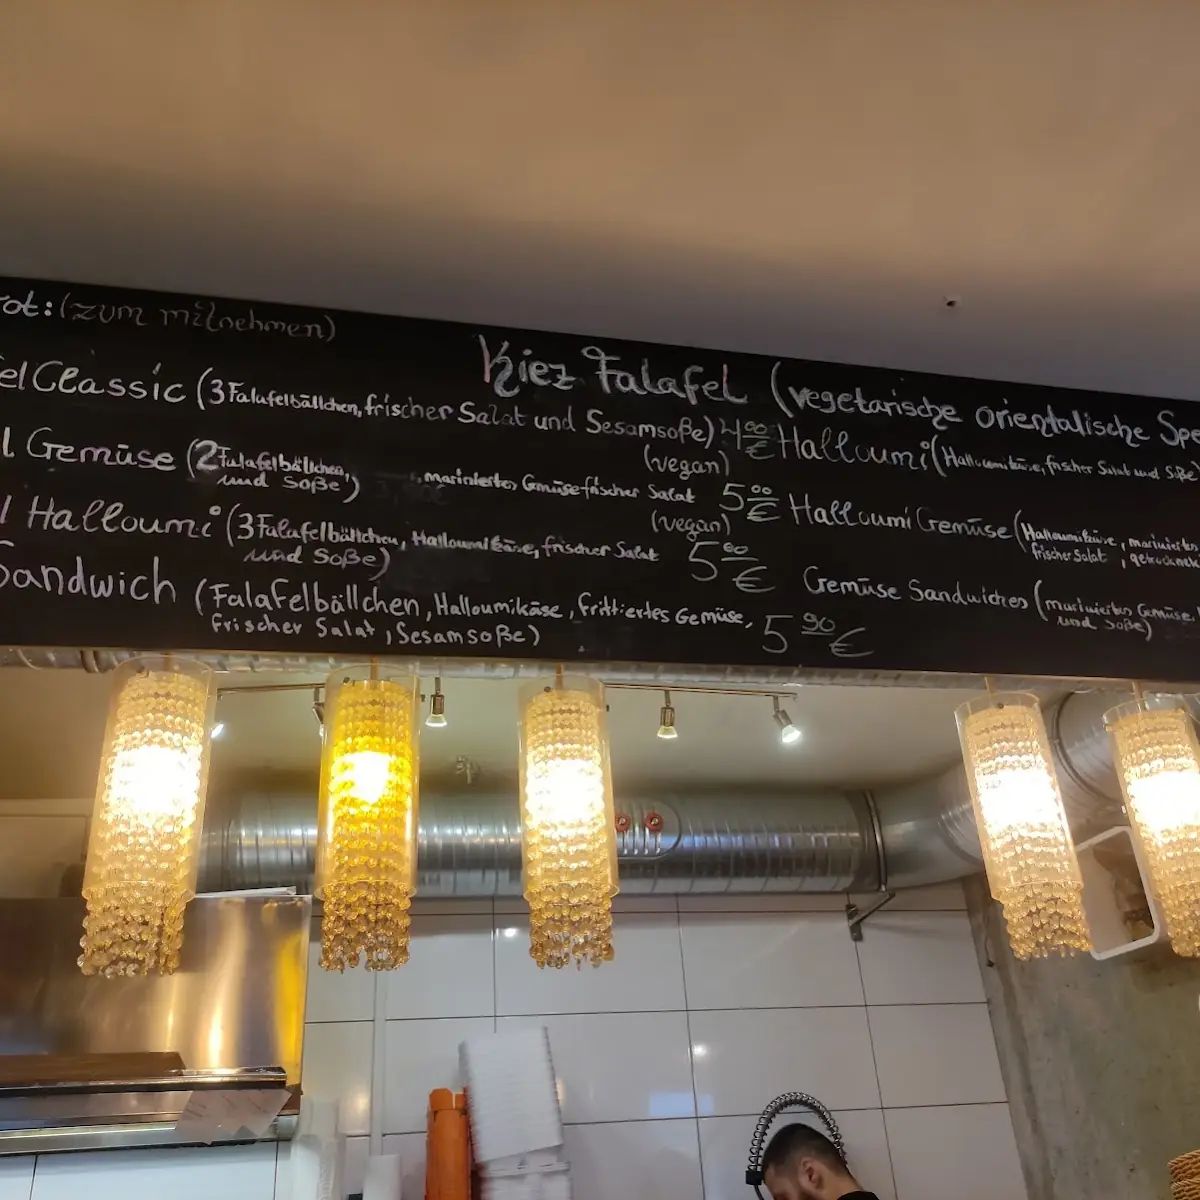 rot: (zum mitnehmen)
Kiez Falafel (vegetarische orientalische Spe
el Classic (3 Falafelbällchen, frischer Salat und Sesamsoße) 4 00 €
(vegan)
l Gemüse (2 Falafelbällchen, mariniertes Gemüse frischer Salat 5 00 €
und Soße)
(vegan)
l Halloumi (3 Falafelbällchen, Halloumikäse, frischer Salat 5 00 €
und Soße)
Sandwich (Falafelbällchen, Halloumikäse, frittiertes Gemüse, 5 90 €
frischer Salat, Sesamsoße)
Halloumi (Halloumikäse, frischer Salat und Soße
Halloumi Gemüse (Halloumikäse, mariniertes
frischer Salat,
Gemüse Sandwiches (mariniertes Gemüse,
und Soße)